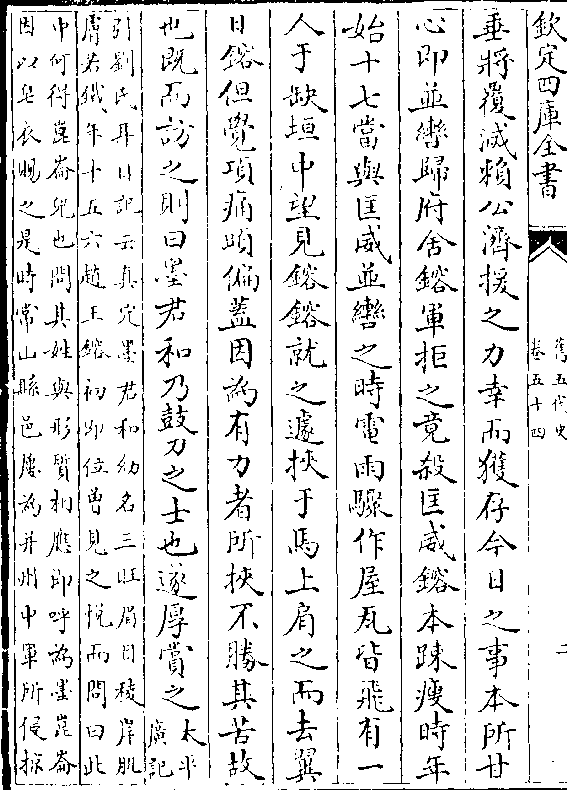 欽定四庫全書
舊五代史
卷五十四
二
垂將覆滅賴公濟援之力幸而獲存今日之事本所甘
心即並轡歸府舍鎔軍拒之竟殺匡威鎔本疎瘦時年
始十七當與匡威並轡之時電雨驟作屋瓦皆飛有一
人于缺垣中望見鎔鎔就之遽挾于馬上肩之而去翼
日鎔但覺項痛頭偏蓋因為有力者所挾不勝其苦故
也既而訪之則曰墨君和乃鼓刀之士也遂厚賞之
太平
廣記
引劉氏耳目記云真定墨君和幼名三旺眉目稜岸肌
膚若鐵年十五六趙王鎔初即位曾見之悅而問曰此
中何得崑崙兒也問其姓與形質相應即呼為墨崑崙
因以皂衣賜之是時常山縣邑屢為并州中軍所侵掠